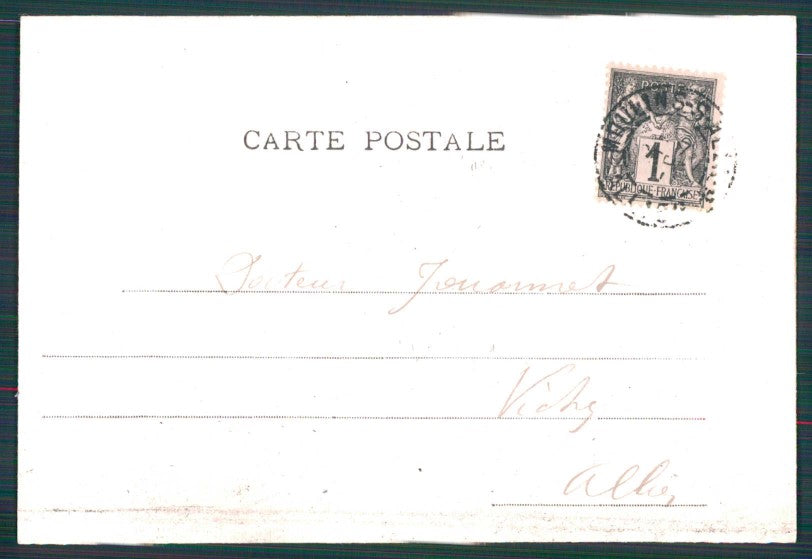 POSTES
MOULINS-S-ALLIER
1
REPUBLIQUE-FRANCAISE
CARTE POSTALE
Docteur Jouannet
Vichy
Allier